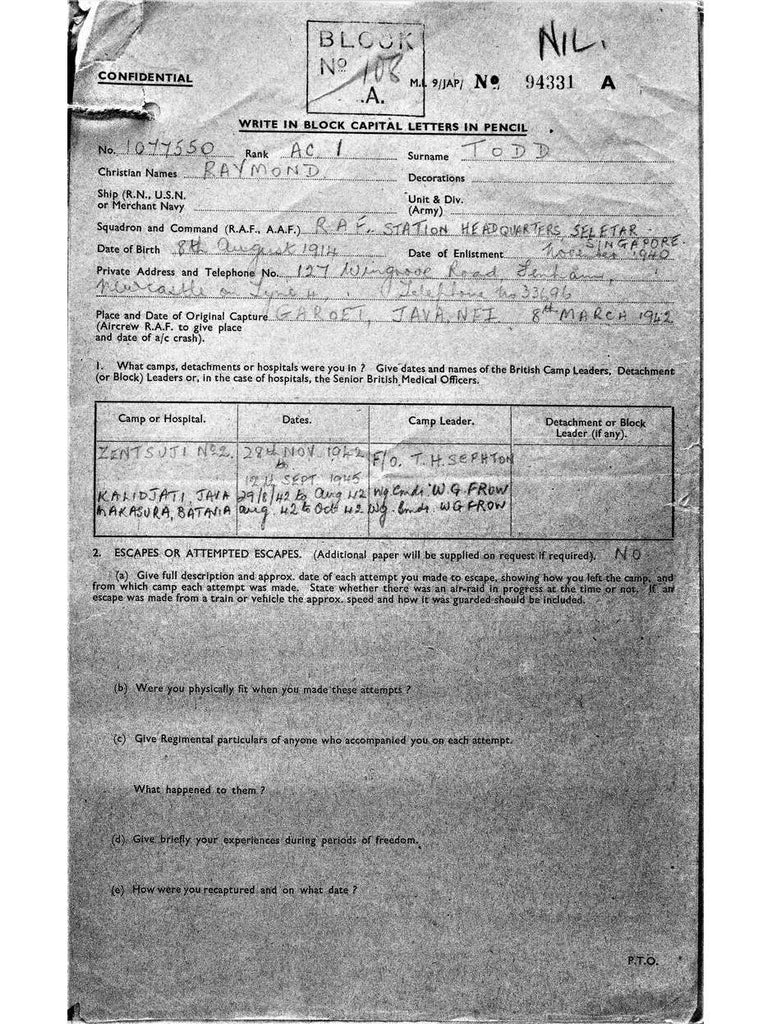 NIL.
BLOCK
No 108
.A.
CONFIDENTIAL
M.I. 9/JAP/ No. 94331 A
WRITE IN BLOCK CAPITAL LETTERS IN PENCIL.
No. 1077550 Rank AC 1 Surname TODD
Christian Names RAYMOND Decorations
Ship (R.N., U.S.N. or Merchant Navy Unit & Div. (Army)
Squadron and Command (R.A.F., A.A.F.) R.A.F. STATION HEADQUARTERS SELETAR.
SINGAPORE.
Date of Birth 8th August 1914 Date of Enlistment November 1940
Private Address and Telephone No. 127 Wingrove Road Fenham,
Newcastle on Tyne 4, Telephone No 33696
Place and Date of Original Capture GAROET, JAVA, NEI 8th MARCH 1942
(Aircrew R.A.F. to give place
and date of a/c crash).
1. What camps, detachments or hospitals were you in ? Give dates and names of the British Camp Leaders, Detachment
(or Block) Leaders or, in the case of hospitals, the Senior British Medical Officers.
Camp or Hospital. Dates. Camp Leader. Detachment or Block Leader (if any).
ZENTSUJI No 2. 28th NOV 1942 to 12th SEPT 1945 F/O. T.H. SEPHTON
KALIDJATI, JAVA 29/6/42 to Aug 42 Wg Cmdr W G FROW
MAKASURA, BATAVIA Aug. 42 to Oct 42 Wg. Cmdr. W G FROW
2. ESCAPES OR ATTEMPTED ESCAPES. (Additional paper will be supplied on request if required). NO
(a) Give full description and approx. date of each attempt you made to escape, showing how you left the camp, and
from which camp each attempt was made. State whether there was an air-raid in progress at the time or not. If an
escape was made from a train or vehicle the approx. speed and how it was guarded should be included.
(b) Were you physically fit when you made these attempts ?
(c) Give Regimental particulars of anyone who accompanied you on each attempt.
What happened to them ?
(d) Give briefly your experiences during periods of freedom.
(e) How were you recaptured and on what date ?
P.T.O.